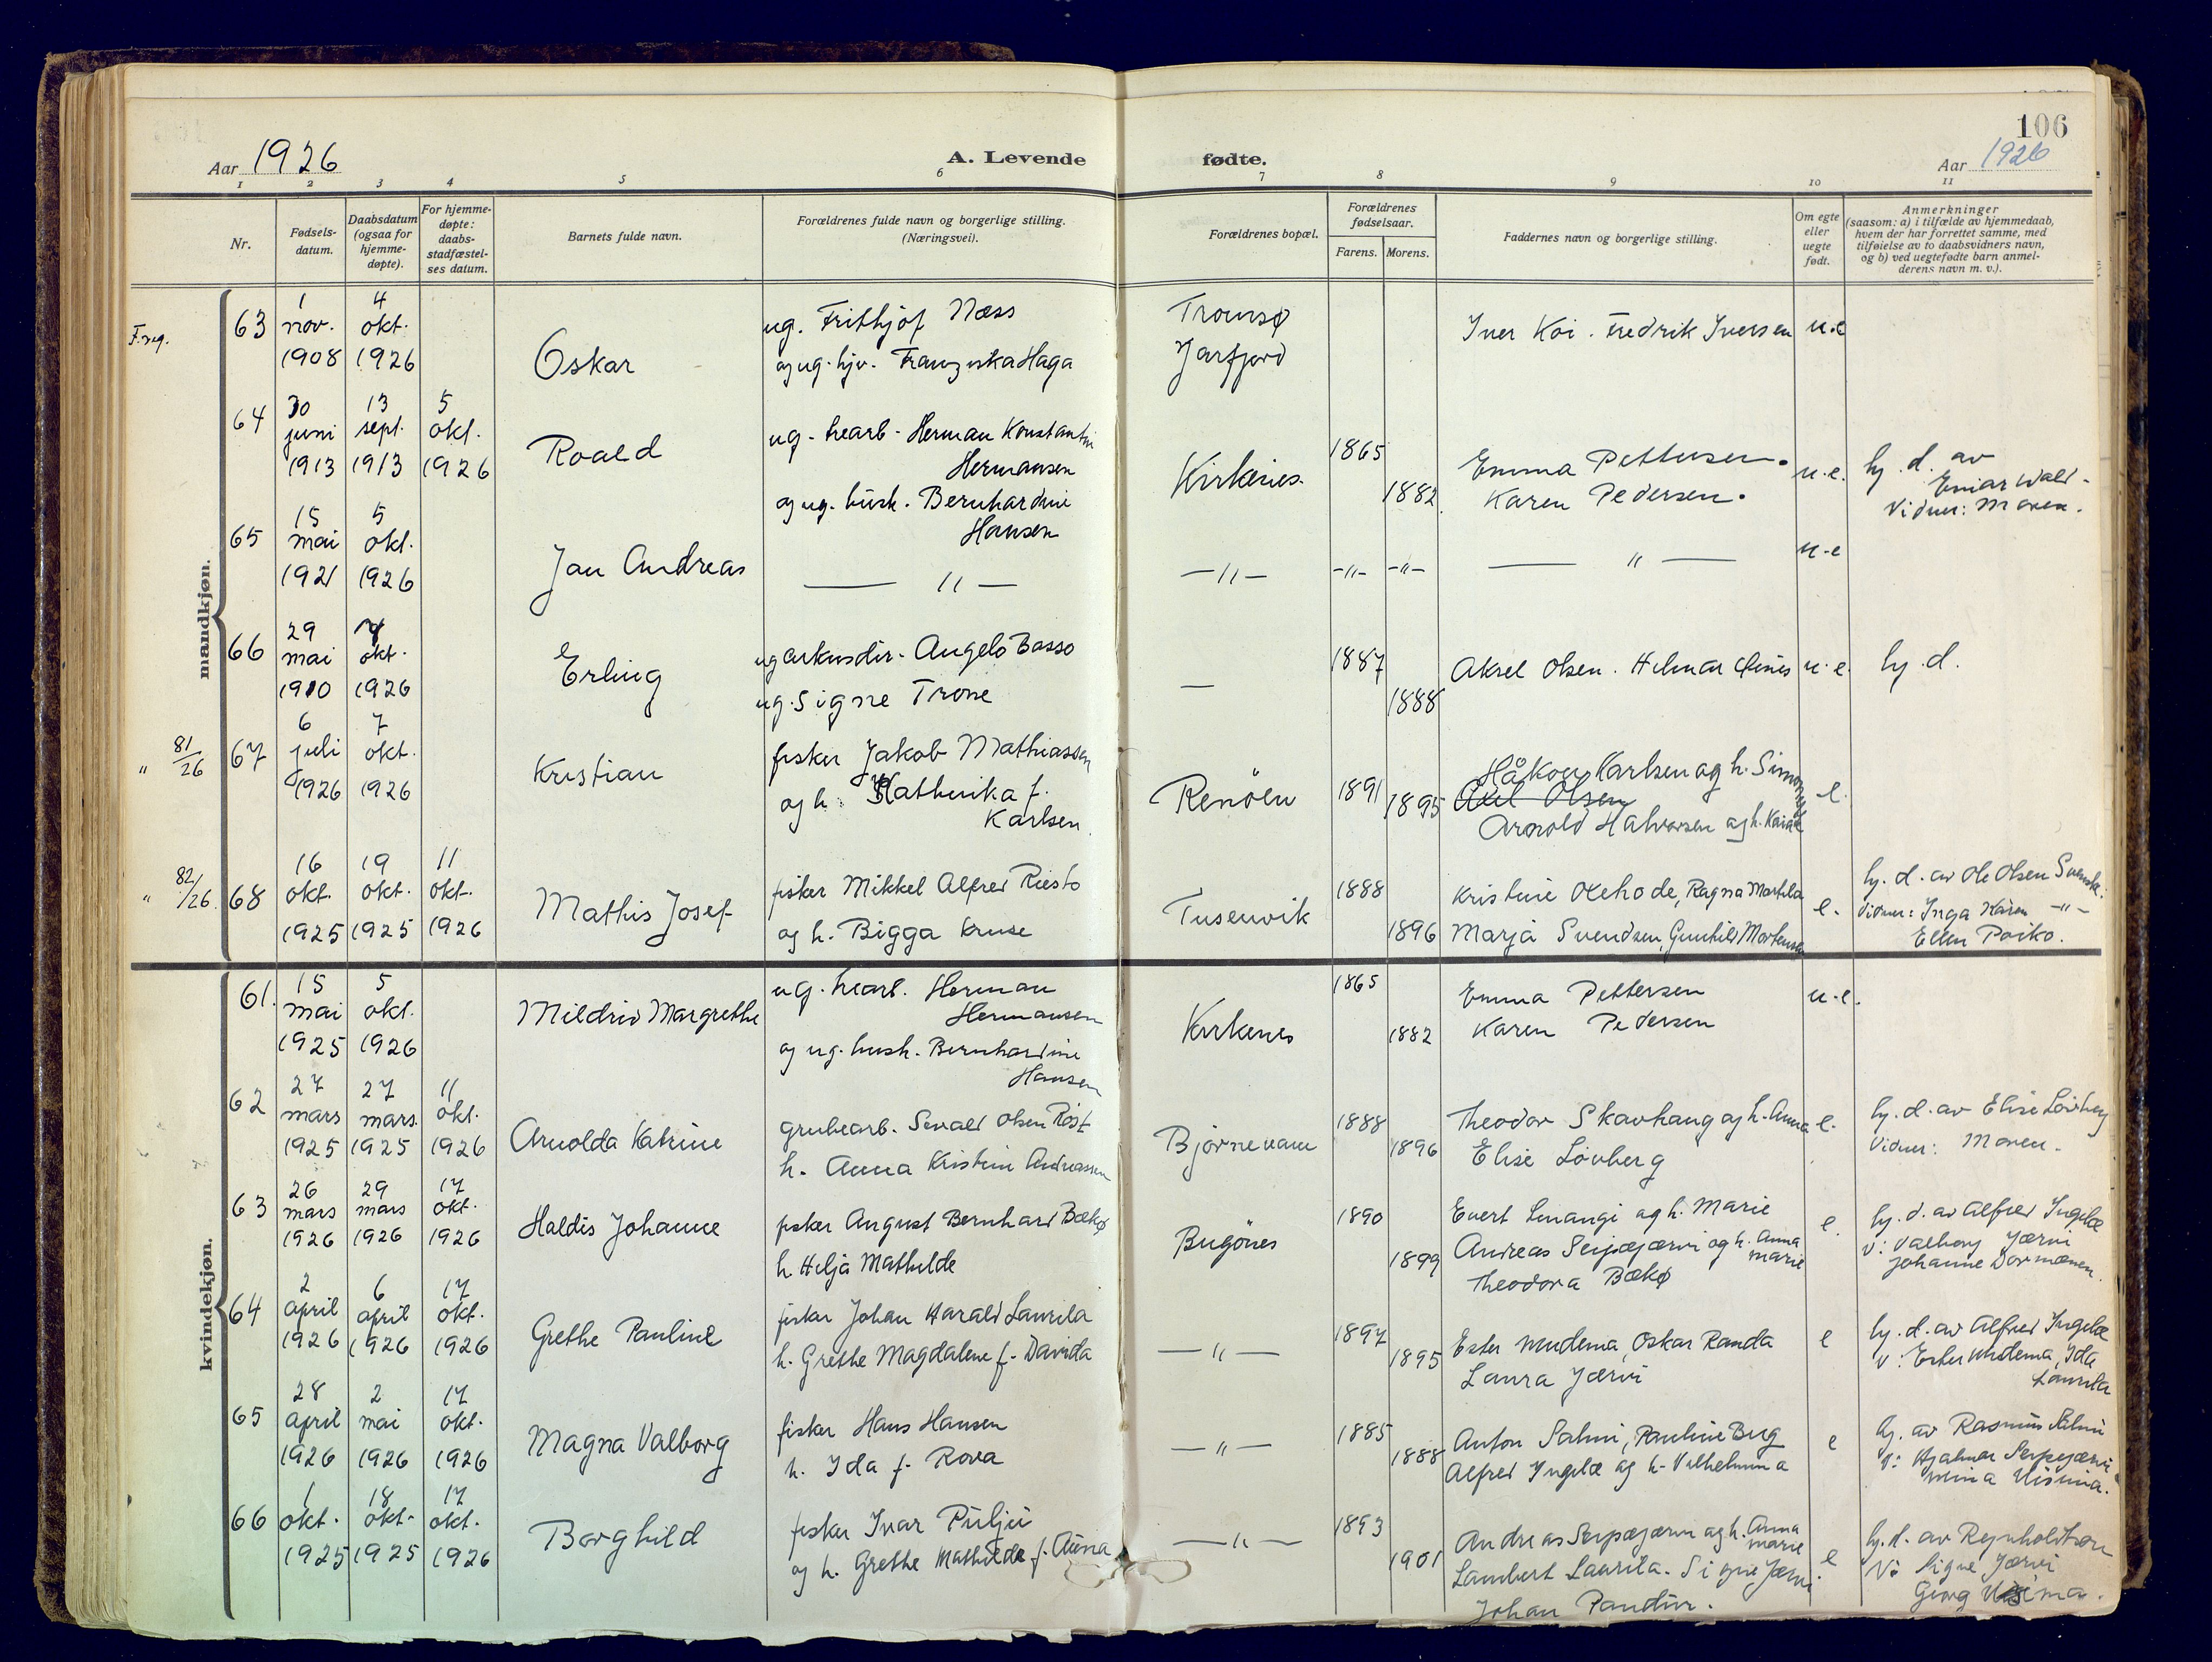 106
Aar 1926
A. Levende fødte.
Aar 1926
1 2 3 4 5 6 7 8 9 10 11
Nr.
Fødsels-
datum.
Daabsdatum
(ogsaa for
hjemme-
døpte).
For hjemme-
døpte:
daabs-
stadfæstel-
ses datum.
Barnets fulde navn.
Forældrenes fulde navn og borgerlige stilling.
(Næringsvei).
Forældrenes bopæl.
Forældrenes
fødselsaar.
Farens. Morens.
Faddernes navn og borgerlige stilling.
Om egte
eller
uegte
født.
Anmerkninger
(saasom: a) i tilfælde av hjemmedaab,
hvem der har forrettet samme, med
tilføielse av to daabsvidners navn,
og b) ved uegtefødte barn anmel-
derens navn m. v.).
mandkjøn.
F.reg.
63
1 nov. 1908
4 okt. 1926
Oskar
ug. Frithjof Næss
og ug. hjv. Franziska Haga
Tromsø
Jarfjord
Iver Koi. Fredrik Iversen
u.e
64
30 juni 1913
13 sept. 1913
5 okt. 1926
Roald
ug. Herman Konstantin
Hermansen
og ug. hush. Bernhardine
Hansen
Kirkenes.
1865
1882
Emma Pettersen.
Karen Pedersen.
u.e.
hj. d. av
Einar Wald-
Vidner: Moren.
65
15 mai 1921
5 okt. 1926
Jan Andreas
— " —
— " —
— " — — " —
— " —
u-e
66
29 mai 1910
okt. 1926
Erling
ug Cirkusdir. Angelo Basso
ug. Signe Trone
—
1887
1888
Aksel Olsen. Hilmar
u.e.
hj. d.
" 81/26
67
6 juli 1926
7 okt. 1926
Kristian
fisker Jakob Mathiassen
og h. Katherika f.
Karlsen
Renöen
1891
1895
Håkon Karlsen og h. Simony
Axel Olsen
Arnold Halvorsen og h.
e.
" 82/26
68
16 okt. 1925
19 okt. 1925
11 okt. 1926
Mathis Josef
fisker Mikkel Alfred Riesto
og h. Bigga Kruse
Tusenvik
1888
1896
Kristine Ragna Martila
Marja Svendsen, Gunhild Mortensen
e.
hj. d. av Ole Olsen Svensk.
Vidner: Inga Karen — " —
Ellen Poiko.
kvindekjøn.
61.
15 mai 1925
5 okt. 1926
Mildrid Margrethe
ug. Herman
Hermansen
og ug. hush. Bernhardine
Hansen
Kirkenes
1865
1882
Emma Pettersen
Karen Pedersen
u.e.
62
27 mars 1925
27 mars. 1925
11 okt. 1926
Arnolda Katrine
grubearb. Sevald Olsen Röst
h. Anna Kristine Andreassen
Björnevann
1888
1896
Theodor Skavhaug og h. Anna
Elise Lövberg
e.
hj. d. av Elise Lövberg
Vidner: Moren.
63
26 mars 1926
29 mars 1926
17 okt. 1926
Haldis Johanne
fisker August Bernhard Bækø
h. Hilja Mathilde
Bugönes
1890
1899
Evert Linangi og h. Marie
Andreas Seipæjærvi og h. Anna
Marie
Theodora Bækø
e.
hj. d. av Alfred Ingelæ
V: Valborg Jærvi
Johanne Dormænen.
64
2 april 1926
6 april 1926
17 okt. 1926
Grethe Pauline
fisker Johan Harald Laurila
h. Grethe Magdalene f. Davida
— " —
1897
1895
Ester Oskar Randa
Laura Jærvi
e
hj. d. av Alfred Ingelæ
V: Ester Ida
Laurila
65
28 april 1926
2 mai 1926
17 okt. 1926
Magna Valborg
fisker Hans Hansen
h. Ida f. Rova
— " —
1885
1888
Anton Salmi, Pauline Bug
Alfred Ingelæ og h. Vilhelmina
e
hj. av Rasmus Salmi
V: Hjalmar Seipæjærvi
Mina
66
1 okt. 1925
18 okt. 1925
17 okt. 1926
Borghild
fisker Ivar Puljui
og h. Grethe Mathilde f. Auna
— " —
1893
1901
Andreas Seipæjærvi og h. Anna
Marie
Lambert Laurila. Signe Jærvi.
Johan
e
hj. d. av Reynholdtson
V: Signe Jærvi
Georg